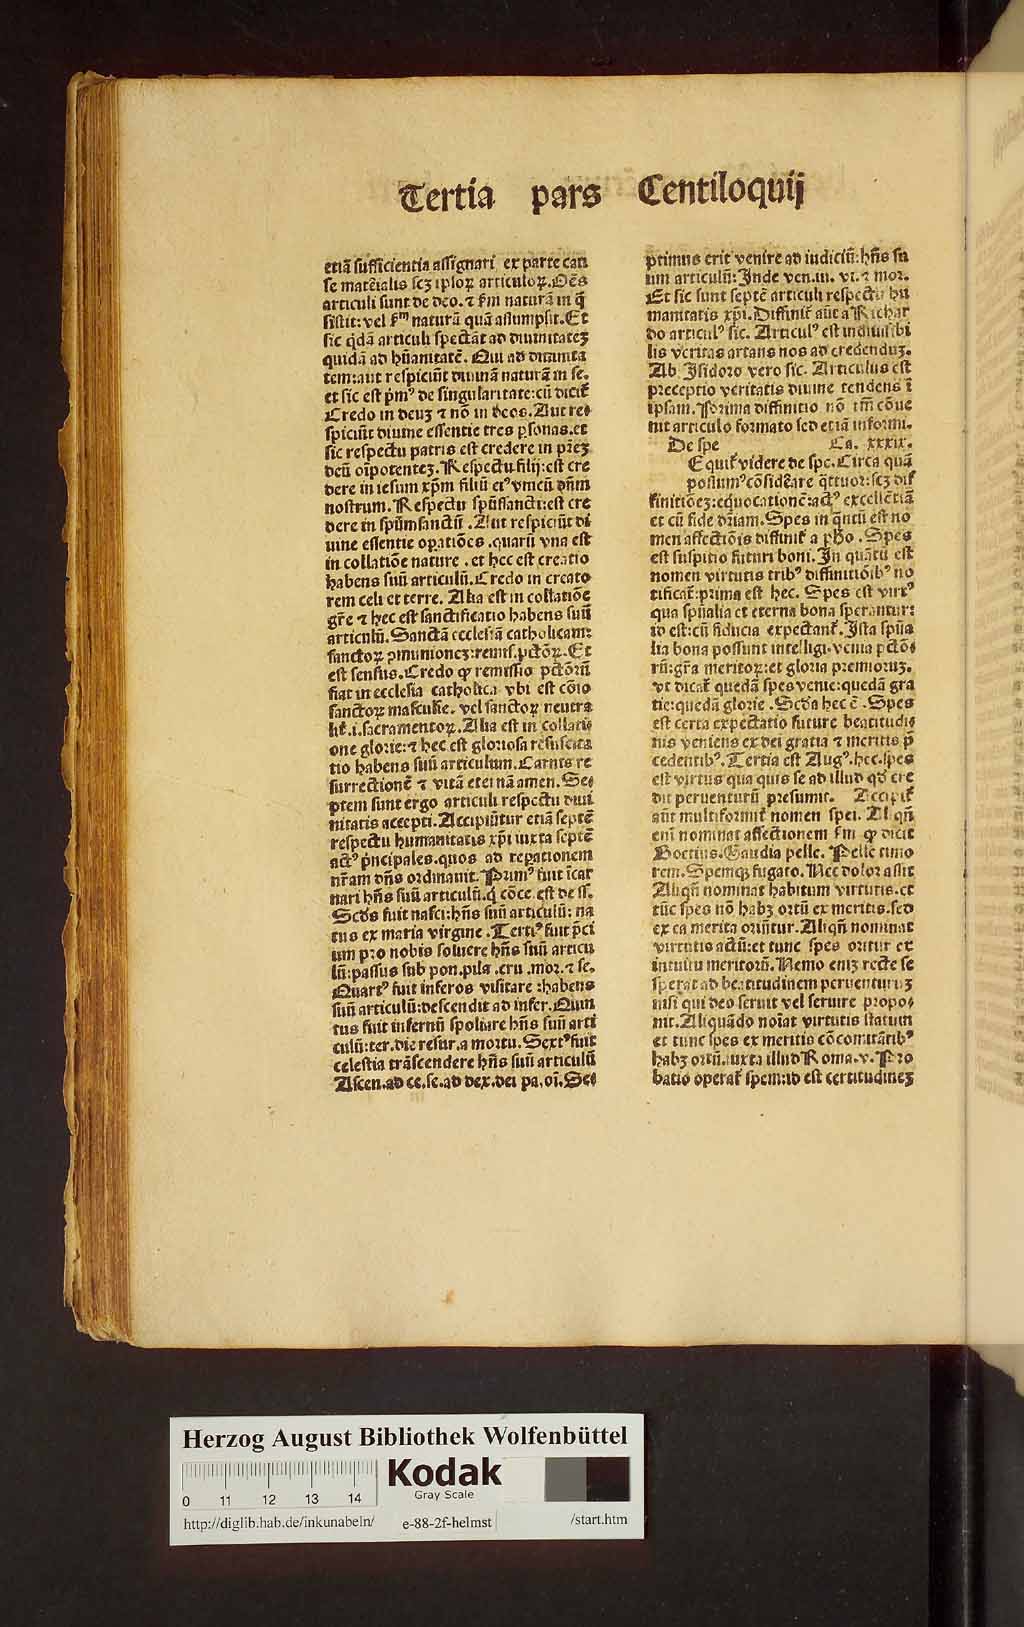 Tertia pars Centiloquij
etiā sufficientia assignari ex parte cau
se mat̄ialis scꝫ ip̄loꝝ articuloꝝ. Oēs
articuli sunt de deo. ⁊ ẜm naturā in q̄
sistit: vel ẜm naturā quā assumpsit. Et
sic q̄dā articuli spectāt ad diuinitateꝫ
quidā ad hūanitatē. Qui ad diuinita
tem: aut respiciūt diuinā naturā in se.
et sic est p̄mꝰ de singularitate: cū dicit̄
Credo in deuꝫ ⁊ nō in deos. Aut re⸗
spiciūt diuine essentie tres ꝑsonas. et
sic respectu patris est credere in p̄reꝫ
deū oīpotenteꝫ. Respectu filij: est cre
dere in iesum xp̄m filiū eiꝰ vnicū dn̄m
nostrum. Respectu spūssancti: est cre
dere in spūm sanctū. Aut respiciūt di
uine essentie oꝑatiōes. quarū vna est
in collatiōe nature. et hec est creatio
habens suū articulū. Credo in creato
rem celi et terre. Alia est in collatiōe
gr̄e ⁊ hec est sanctificatio habens suū
articulū. Sanctā ecclesiā catholicam:
sanctoꝝ ꝯmunioneꝫ: remis. pctōꝝ. Et
est sensus. Credo ꝙ remissio pctōrū
fiat in ecclesia catholica vbi est cōio
sanctoꝝ masculie. vel sanctoꝝ neutra
lit̄. i. sacramentoꝝ. Alia est in collati⸗
one glorie: ⁊ hec est gloriosa resuscita
tio habens suū articulum. Carnis re
surrectionē ⁊ vitā eternā amen. Se⸗
ptem sunt ergo articuli respectu diui
nitatis accepti. Accipiūtur etiā septē
respectu humanitatis xp̄i iuxta septē
actꝰ p̄ncipales. quos ad reꝑationem
nr̄am dn̄s ordinauit. Primꝰ fuit īcar
nari hn̄s suū articulū. q̄ cōce. est de ss.
Scd̄s fuit nasci: hn̄s suū articulū: na
tus ex maria virgine. Tertiꝰ fuit p̄ci
um pro nobis soluere hn̄s suū articu
lū: passus sub pon. pila. cru. mor. ⁊ se.
Quartꝰ fuit inferos visitare: habens
suū articulū: descendit ad infer. Quin
tus fuit infernū spoliare hn̄s suū arti
culū: ter. die resur. a mortu. Sextꝰ fuit
celestia trāscendere hn̄s suū articulū
Ascen. ad ce. se. ad dex. dei pa. oī. Se⸗
ptimus erit venire ad iudiciū: hn̄s su
um articulū: Inde ven. iu. vi. ⁊ mor.
Et sic sunt septē articuli respectu hu
manitatis xp̄i. Diffinit̄ aūt a Richar
do articulꝰ sic. Articulꝰ est indiuisibi
lis veritas artans nos ad credenduꝫ.
Ab Isidoro vero sic. Articulus est
preceptio veritatis diuine tendens ī
ipsam. Prima diffinitio nō tm̄ cōue
nit articulo formato sed etiā informi.
De spe Ca. xxxix.
Equit̄ videre de spe. Circa quā
possumꝰ cōsiderare q̄ttuor: scꝫ dif
finitiōeꝫ: equocationē: actꝰ excellentiā
et cū fide dr̄iam. Spes in q̄ntū est no
men affectiōis diffinit̄ a pho. Spes
est suspitio futuri boni. In quātū est
nomen virtutis tribꝰ diffinitiōibꝰ no
tificat̄: prima est hec. Spes est virtꝰ
qua spūalia et eterna bona sperantur:
id est: cū fiducia expectant̄. Ista spūa
lia bona possunt intelligi. venia pctō⸗
rū: gr̄a meritoꝝ: et gloria premioruꝫ.
vt dicat̄ quedā spes venie: quedā gra
tie: quedā glorie. Scd̄a hec ē. Spes
est certa expectatio future beatitudi⸗
nis veniens ex dei gratia ⁊ meritis p̄
cedentibꝰ. Tertia est Augꝰ. hec. spes
est virtus qua quis se ad illud qd̄ cre
dit peruenturū presumit. Accipit̄
aūt multiformit̄ nomen spei. Aliqn̄
eni nominat affectionem ẜm ꝙ dicit
Boetius. Gaudia pelle. Pelle timo
rem. Spemqꝫ fugato. Nec dolor assit
Aliqn̄ nominat habitum virtutis. et
tūc spes nō habꝫ ortū ex meritis. sed
ex ea merita oriūtur. Aliqn̄ nominat
virtutis actū: et tunc spes oritur ex
intuitu meritorū. Nemo eniꝫ recte se
sperat ad beatitudinem peruenturuꝫ
nisi qui deo seruit vel seruire propo⸗
nit. Aliquādo noīat virtutis statum
et tunc spes ex meritis cōcomitātibꝰ
habꝫ ortū. iuxta illud Roma. v. Pro
batio operat̄ spem: id est certitudineꝫ
Herzog August Bibliothek Wolfenbüttel
0 11 12 13 14
Kodak
Gray Scale
http://diglib.hab.de/inkunabeln/ e-88-2f-helmst /start.htm